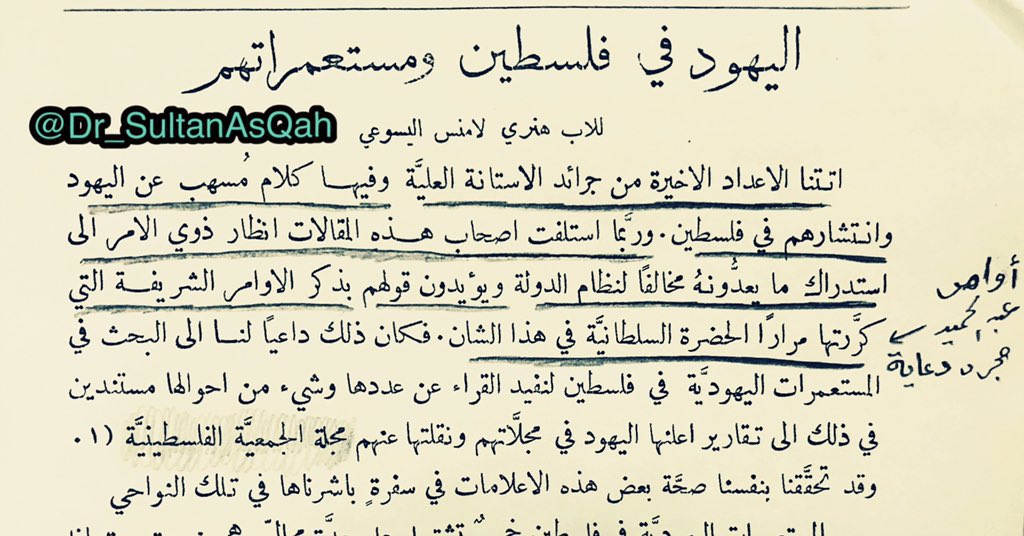 اليهود في فلسطين ومستعمراتهم
@Dr_SultanAsQah
للاب هنري لامنس اليسوعي
اتتنا الاعداد الاخيرة من جرائد الاستانة العليَّة وفيهـا كلام مُسهب عن اليهود
وانتشارهم في فلسطين. وربَّما استلفت اصحاب هـذه المقالات انظار ذوي الامر الى
استدراك ما يعدُّونهُ مخالفًا لنظام الدولة ويؤيدون قولهم بذكر الاوامر الشريفـة التي
كرَّرتها مرارًا الحضرة السلطانيَّة في هذا الشان. فكان ذلك داعيًا لنـا الى البحث في
المستعمرات اليهوديَّة في فلسطين لنفيد القراء عن عددها وشيء من احوالها مستندين
في ذلك الى تقارير اعلنها اليهود في مجلَّاتهم ونقلتها عنهم مجلة الجمعيَّة الفلسطينيَّة (١.
وقد تحقَّقنا بنفسنا صحَّة بعض هذه الاعلامات في سفرةٍ باشرناها في تلك النواحي
أوامر
عبدالحميد
مجرد دعاية